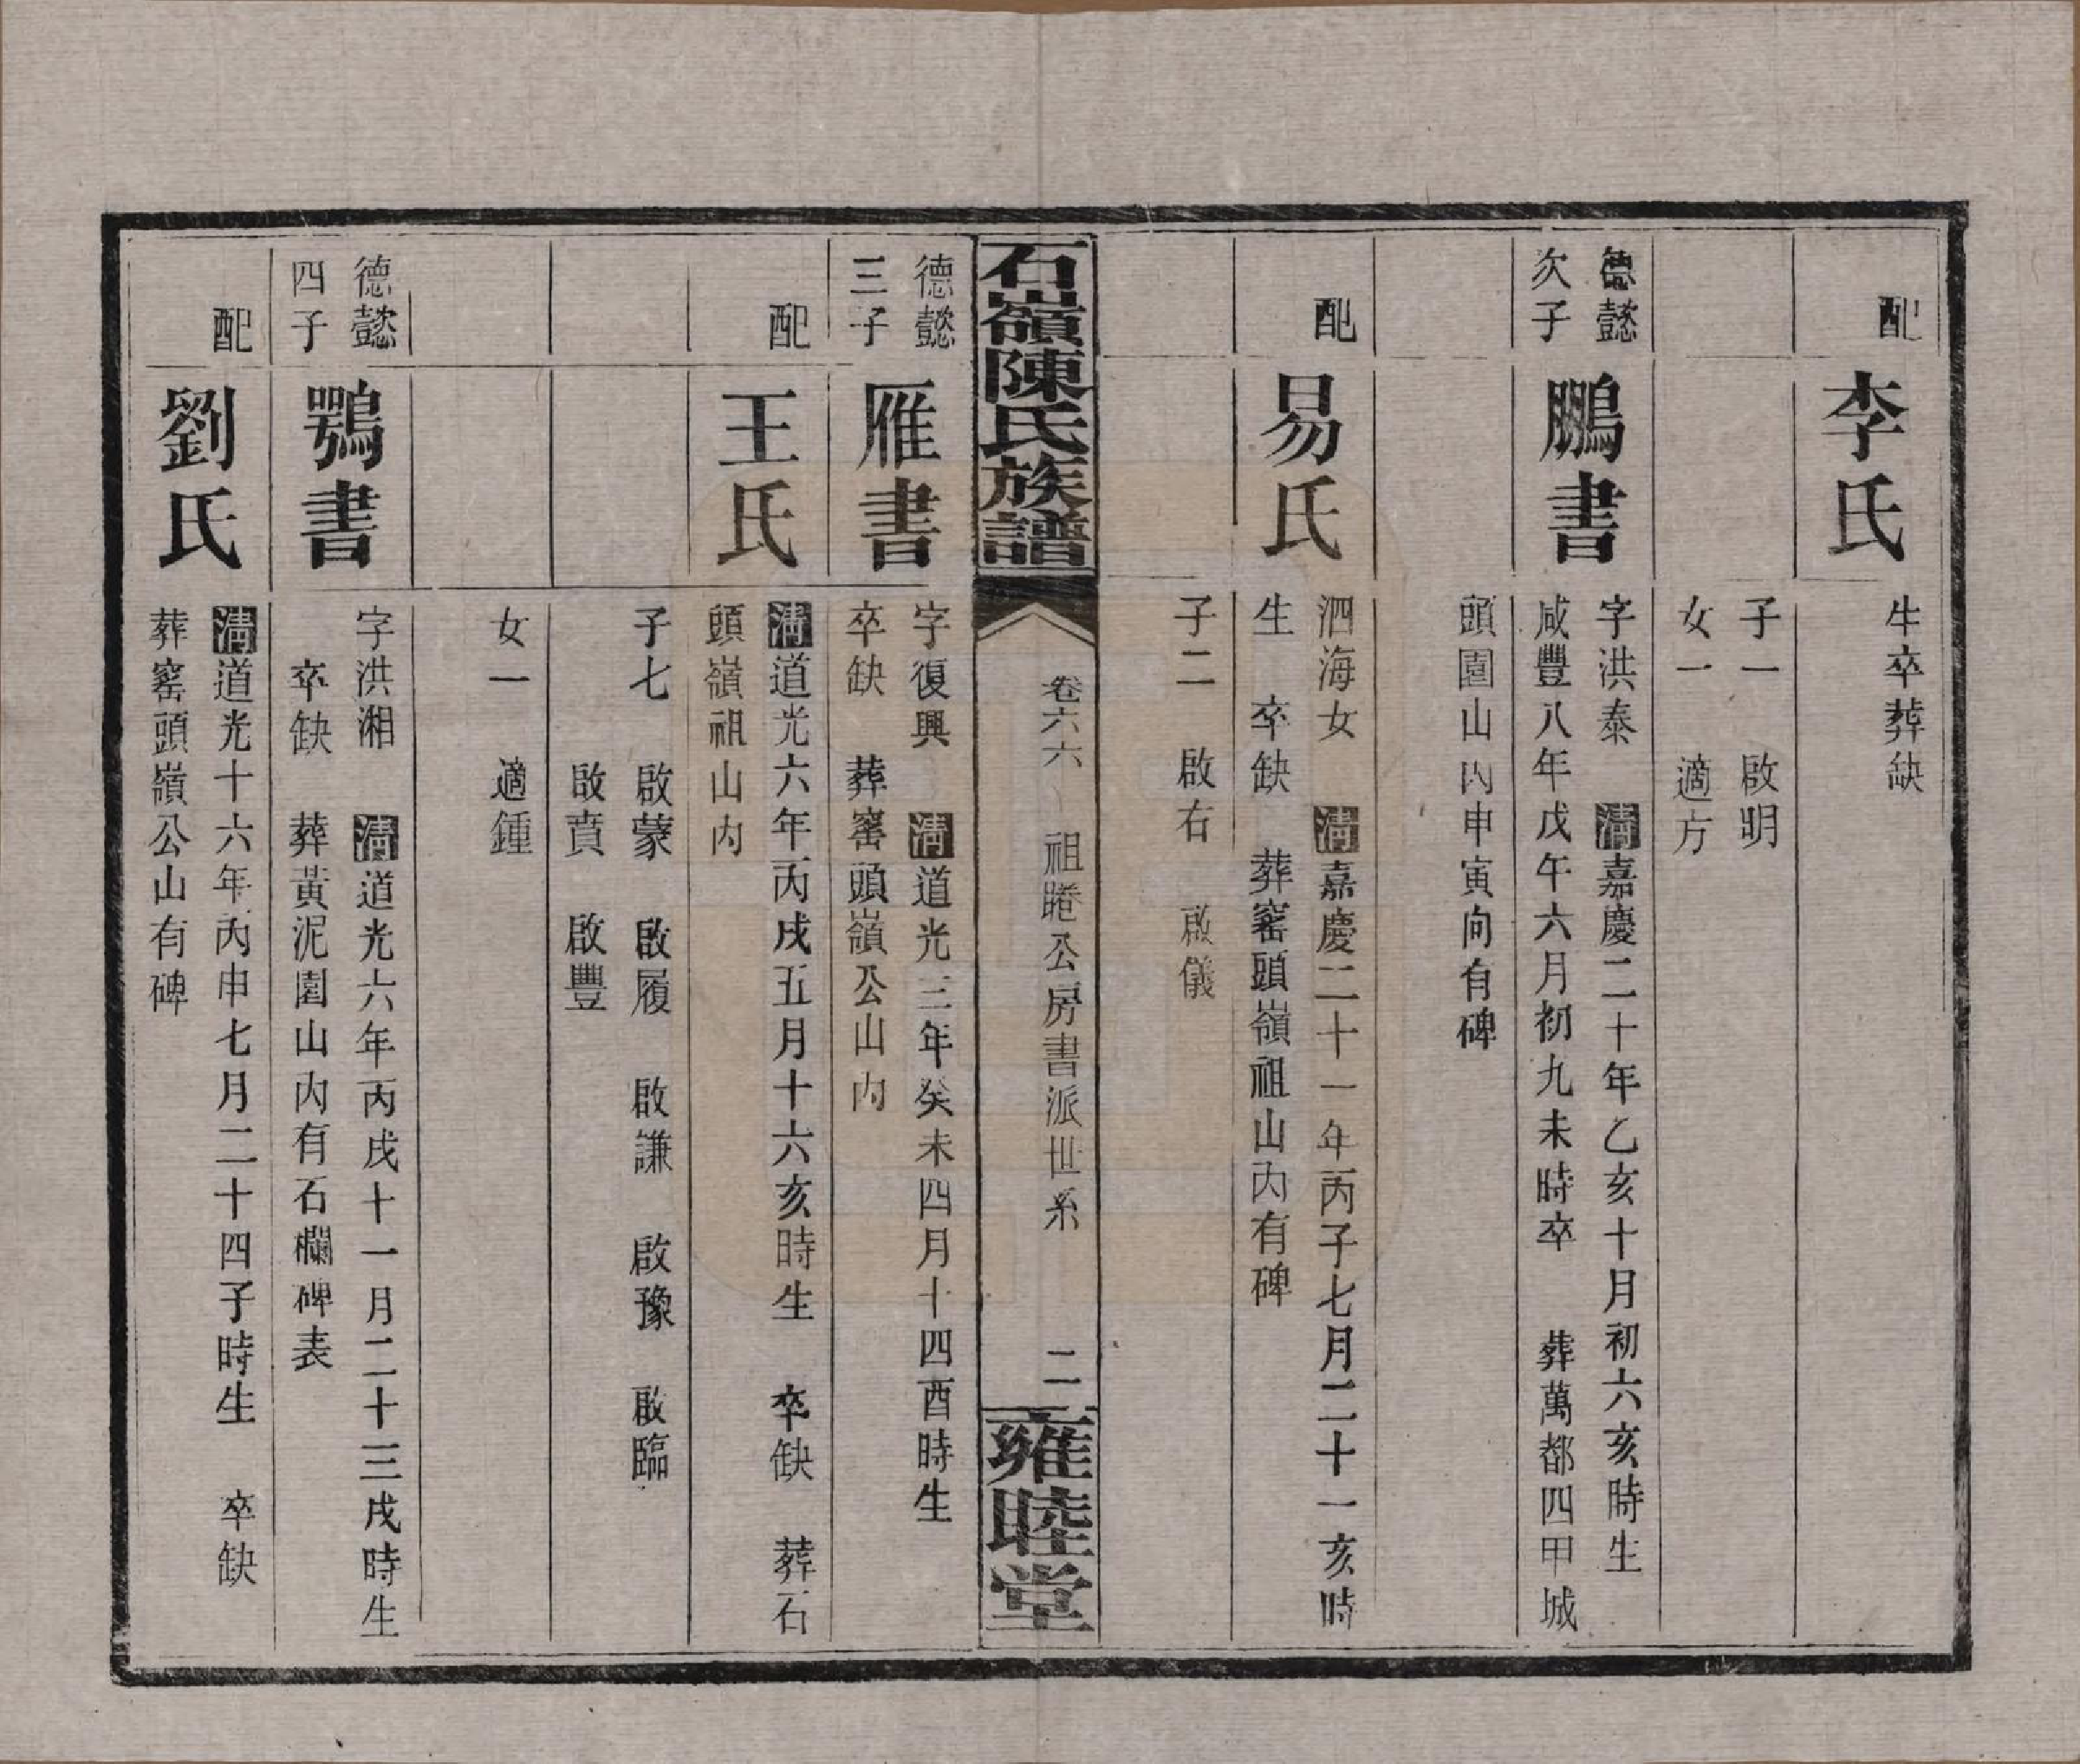 配
李氏
生卒葬缺
子一　啟明
女一　適方
德懿
次子
鵬書
字洪泰　清嘉慶二十年乙亥十月初六亥時生
咸豐八年戊午六月初九未時卒　葬萬都四甲城
頭園山內申寅向有碑
配
易氏
泗海女　清嘉慶二十一年丙子七月二十一亥時
生　卒缺　葬窰頭嶺祖山內有碑
子二　啟右　啟儀
石嶺陳氏族譜
卷六六　祖睠公房書派世系
二
雍睦堂
德懿
三子
雁書
字復興　清道光三年癸未四月十四酉時生
卒缺　葬窰頭嶺公山內
配
王氏
清道光六年丙戌五月十六亥時生　卒缺　葬石
頭嶺祖山內
子七　啟蒙　啟履　啟謙　啟豫　啟臨
啟賁　啟豐
女一　適鍾
德懿
四子
鶚書
字洪湘　清道光六年丙戌十一月二十三戌時生
卒缺　葬黃泥園山內有石欄碑表
配
劉氏
清道光十六年丙申七月二十四子時生　卒缺
葬窰頭嶺公山有碑